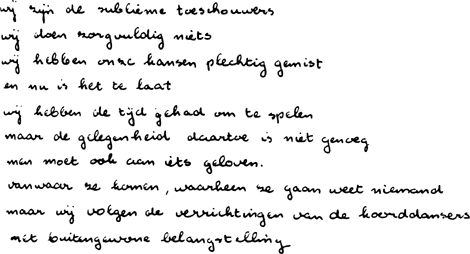 wij zijn de sublieme toeschouwers
wij doen zorgvuldig niets
wij hebben onze kansen plechtig gemist
en nu is het te laat
wij hebben de tijd gehad om te spelen
maar de gelegenheid daartoe is niet genoeg
men moet ook aan iets geloven.
vanwaar ze komen, waarheen ze gaan weet niemand
maar wij volgen de verrichtingen van de koorddansers
met buitengewone belangstelling